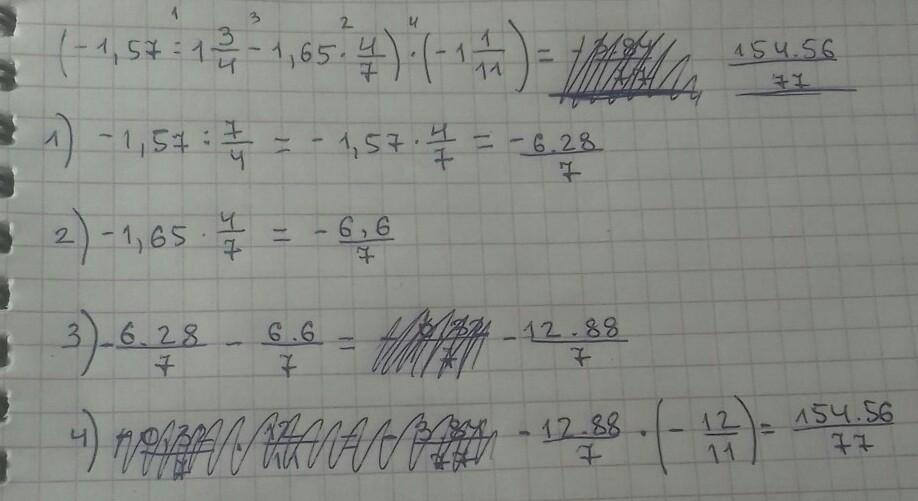 (-1,57 : 1 3/4 - 1,65 · 4/7) · (-1 1/11) = 154.56/77
1) -1,57 : 7/4 = -1,57 · 4/7 = -6.28/7
2) -1,65 · 4/7 = -6,6/7
3) -6.28/7 - 6.6/7 = -12.88/7
4) -12.88/7 · (-12/11) = 154.56/77